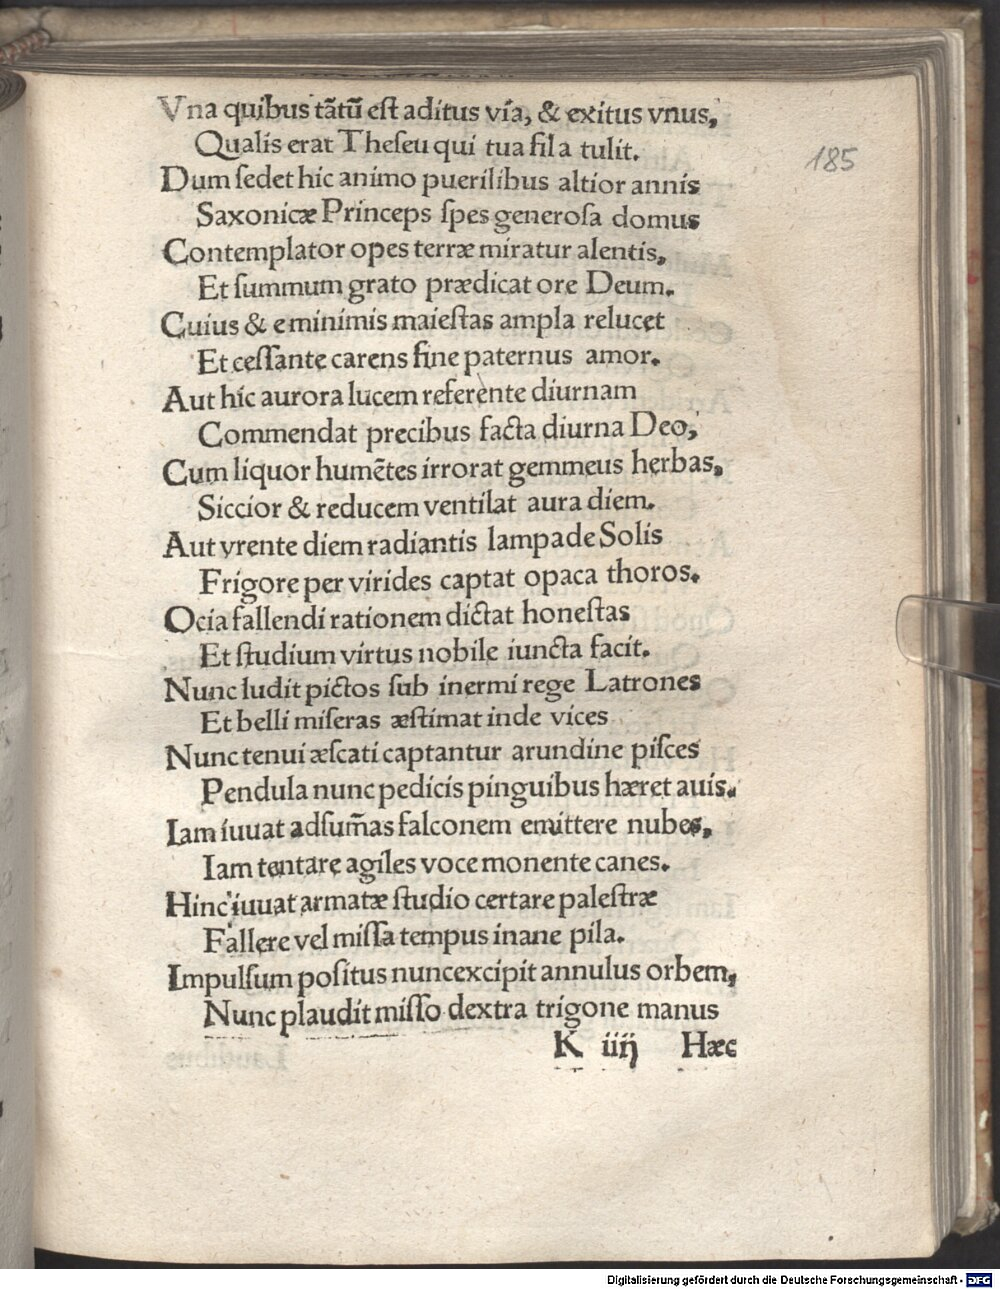 Vna quibus tãtũ est aditus via, & exitus vnus,
185
Qualis erat Theseu qui tua fila tulit.
Dum sedet hic animo puerilibus altior annis
Saxonicæ Princeps spes generosa domus
Contemplator opes terræ miratur alentis,
Et summum grato prædicat ore Deum.
Cuius & e minimis maiestas ampla relucet
Et cessante carens fine paternus amor.
Aut hic aurora lucem referente diurnam
Commendat precibus facta diurna Deo,
Cum liquor humẽtes irrorat gemmeus herbas,
Siccior & reducem ventilat aura diem.
Aut vrente diem radiantis lampade Solis
Frigore per virides captat opaca thoros.
Ocia fallendi rationem dictat honestas
Et studium virtus nobile iuncta facit.
Nunc ludit pictos sub inermi rege Latrones
Et belli miseras æstimat inde vices
Nunc tenui æscati captantur arundine pisces
Pendula nunc pedicis pinguibus hæret auis.
Iam iuuat ad sum̃as falconem emittere nubes,
Iam tentare agiles voce monente canes.
Hinc iuuat armatæ studio certare palestræ
Fallere vel missa tempus inane pila.
Impulsum positus nunc excipit annulus orbem,
Nunc plaudit misso dextra trigone manus
K iiij Hæc
Digitalisierung gefördert durch die Deutsche Forschungsgemeinschaft - DFG